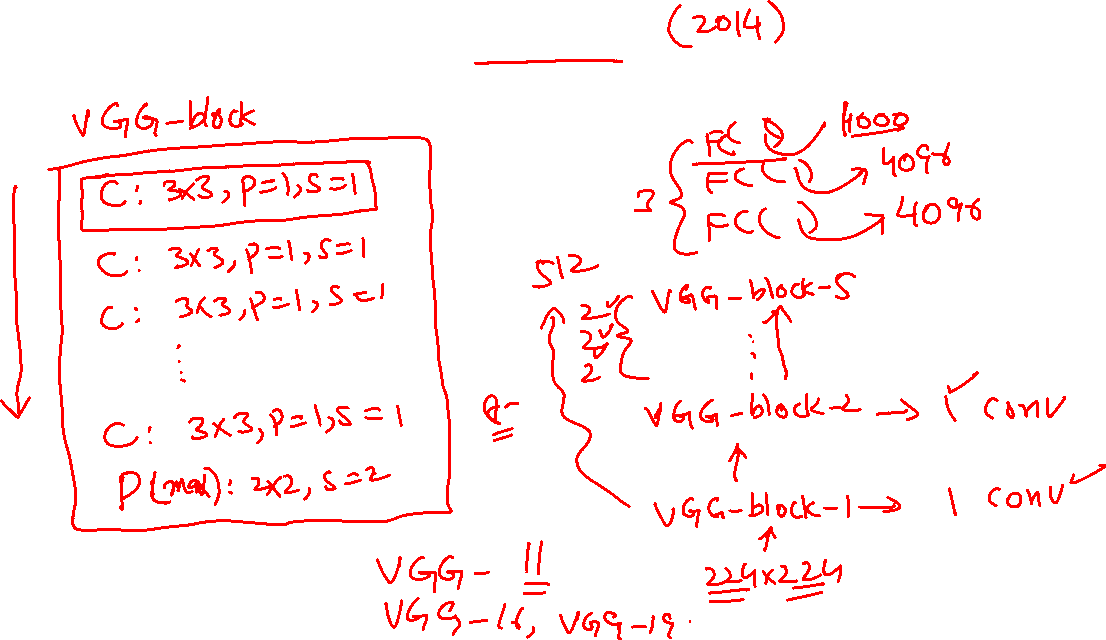 (2014)
VGG-block
C: 3x3, P=1, S=1
C: 3x3, P=1, S=1
C: 3x3, P=1, S=1
C: 3x3, P=1, S=1
P(max): 2x2, S=2
FC( ) 1000
FC( ) → 4096
FC( ) → 4096
3
512
VGG-block-5
2
2
2
8-
VGG-block-2 → 1 conv
VGG-block-1 → 1 conv
224x224
VGG-11
VGG-16, VGG-19.